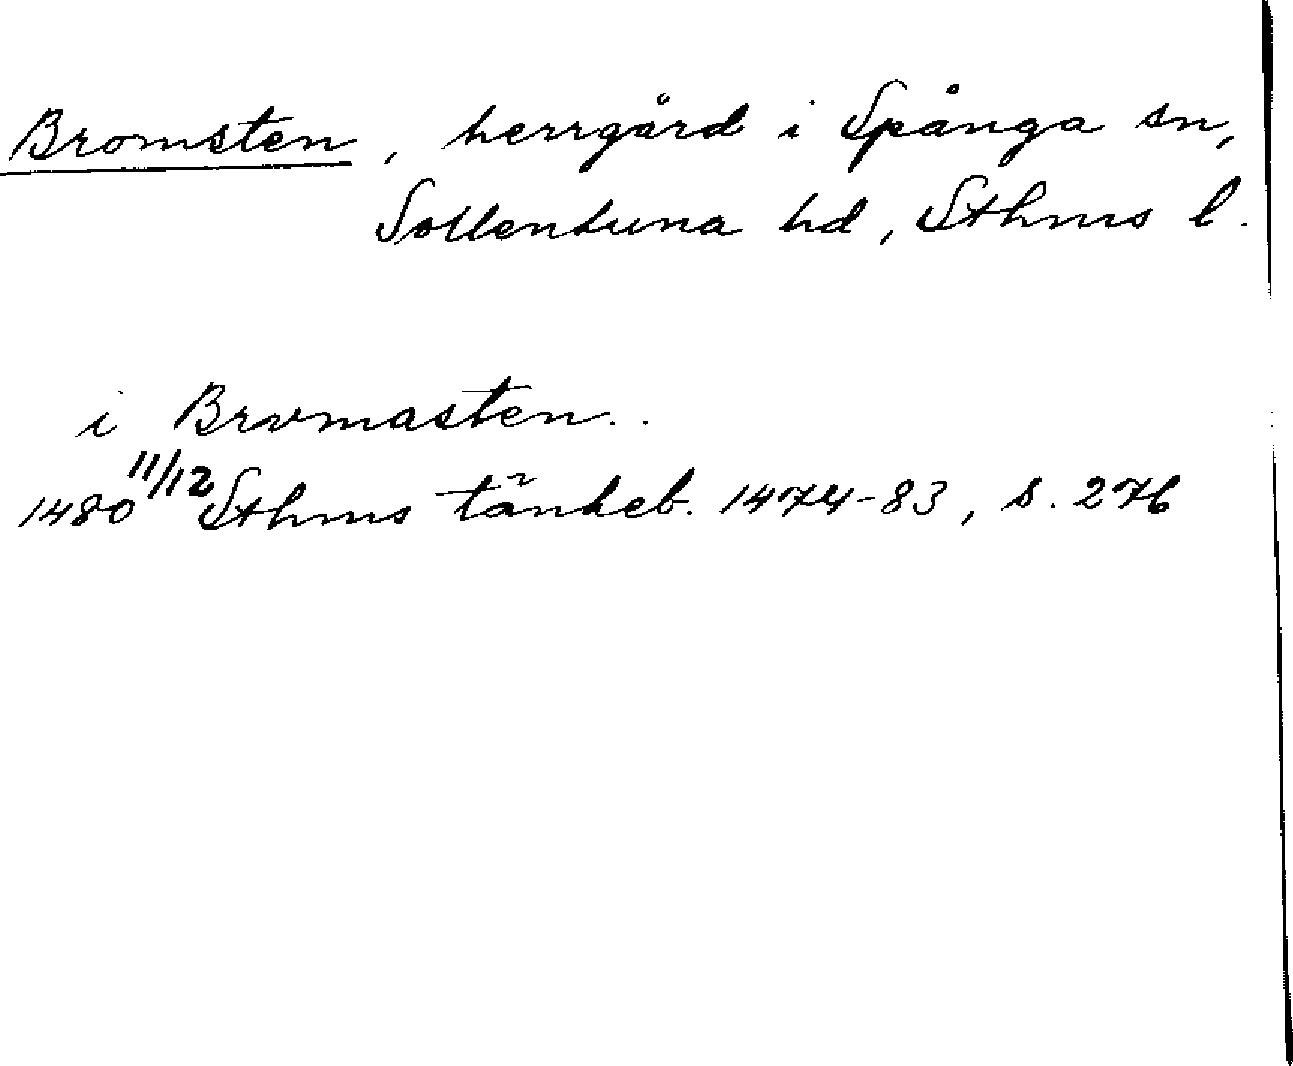 Bromsten, herrgård i Spånga sn,
Sollentuna hd, Sthms l.
i Bromasten..
1480 11/12 Sthms tänkeb. 1474-83, s. 276